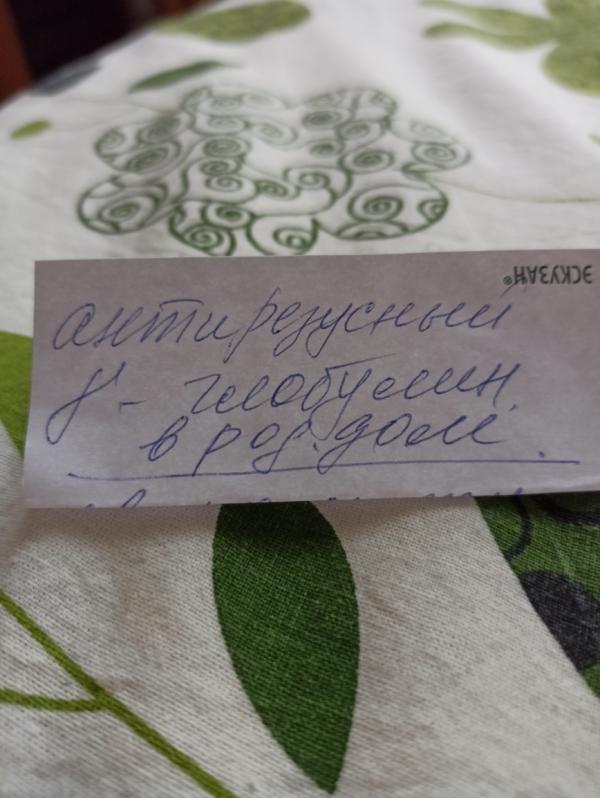 ЭСКУЗАН®
антирезусный
γ - глобулин
в род. дом.